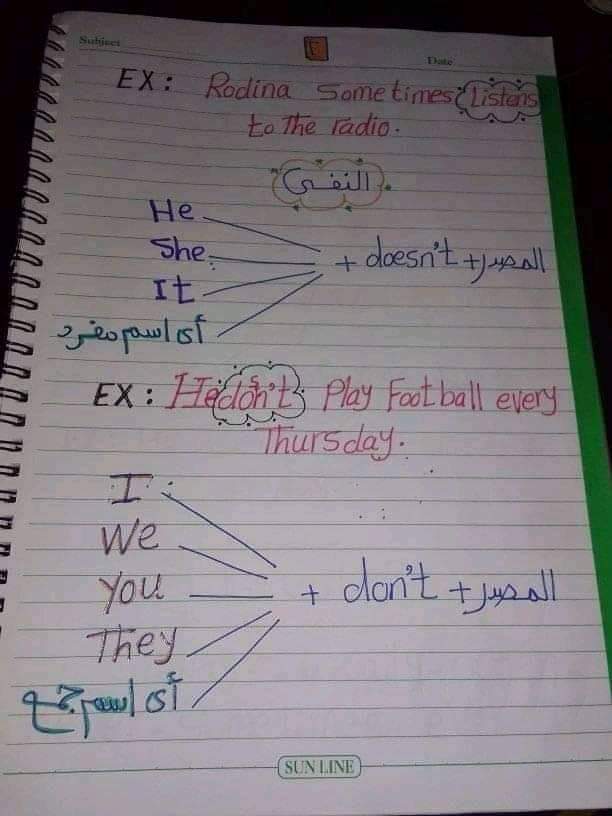 Subject
Date
EX: Rodina sometimes Listens
to The radio.
النفى
He
She
It
أى اسم مفرد
+ doesn't + المصدر
EX: He don't Play Football every
Thursday.
I
We
You
They
أى اسم جمع
+ don't + المصدر
SUN LINE